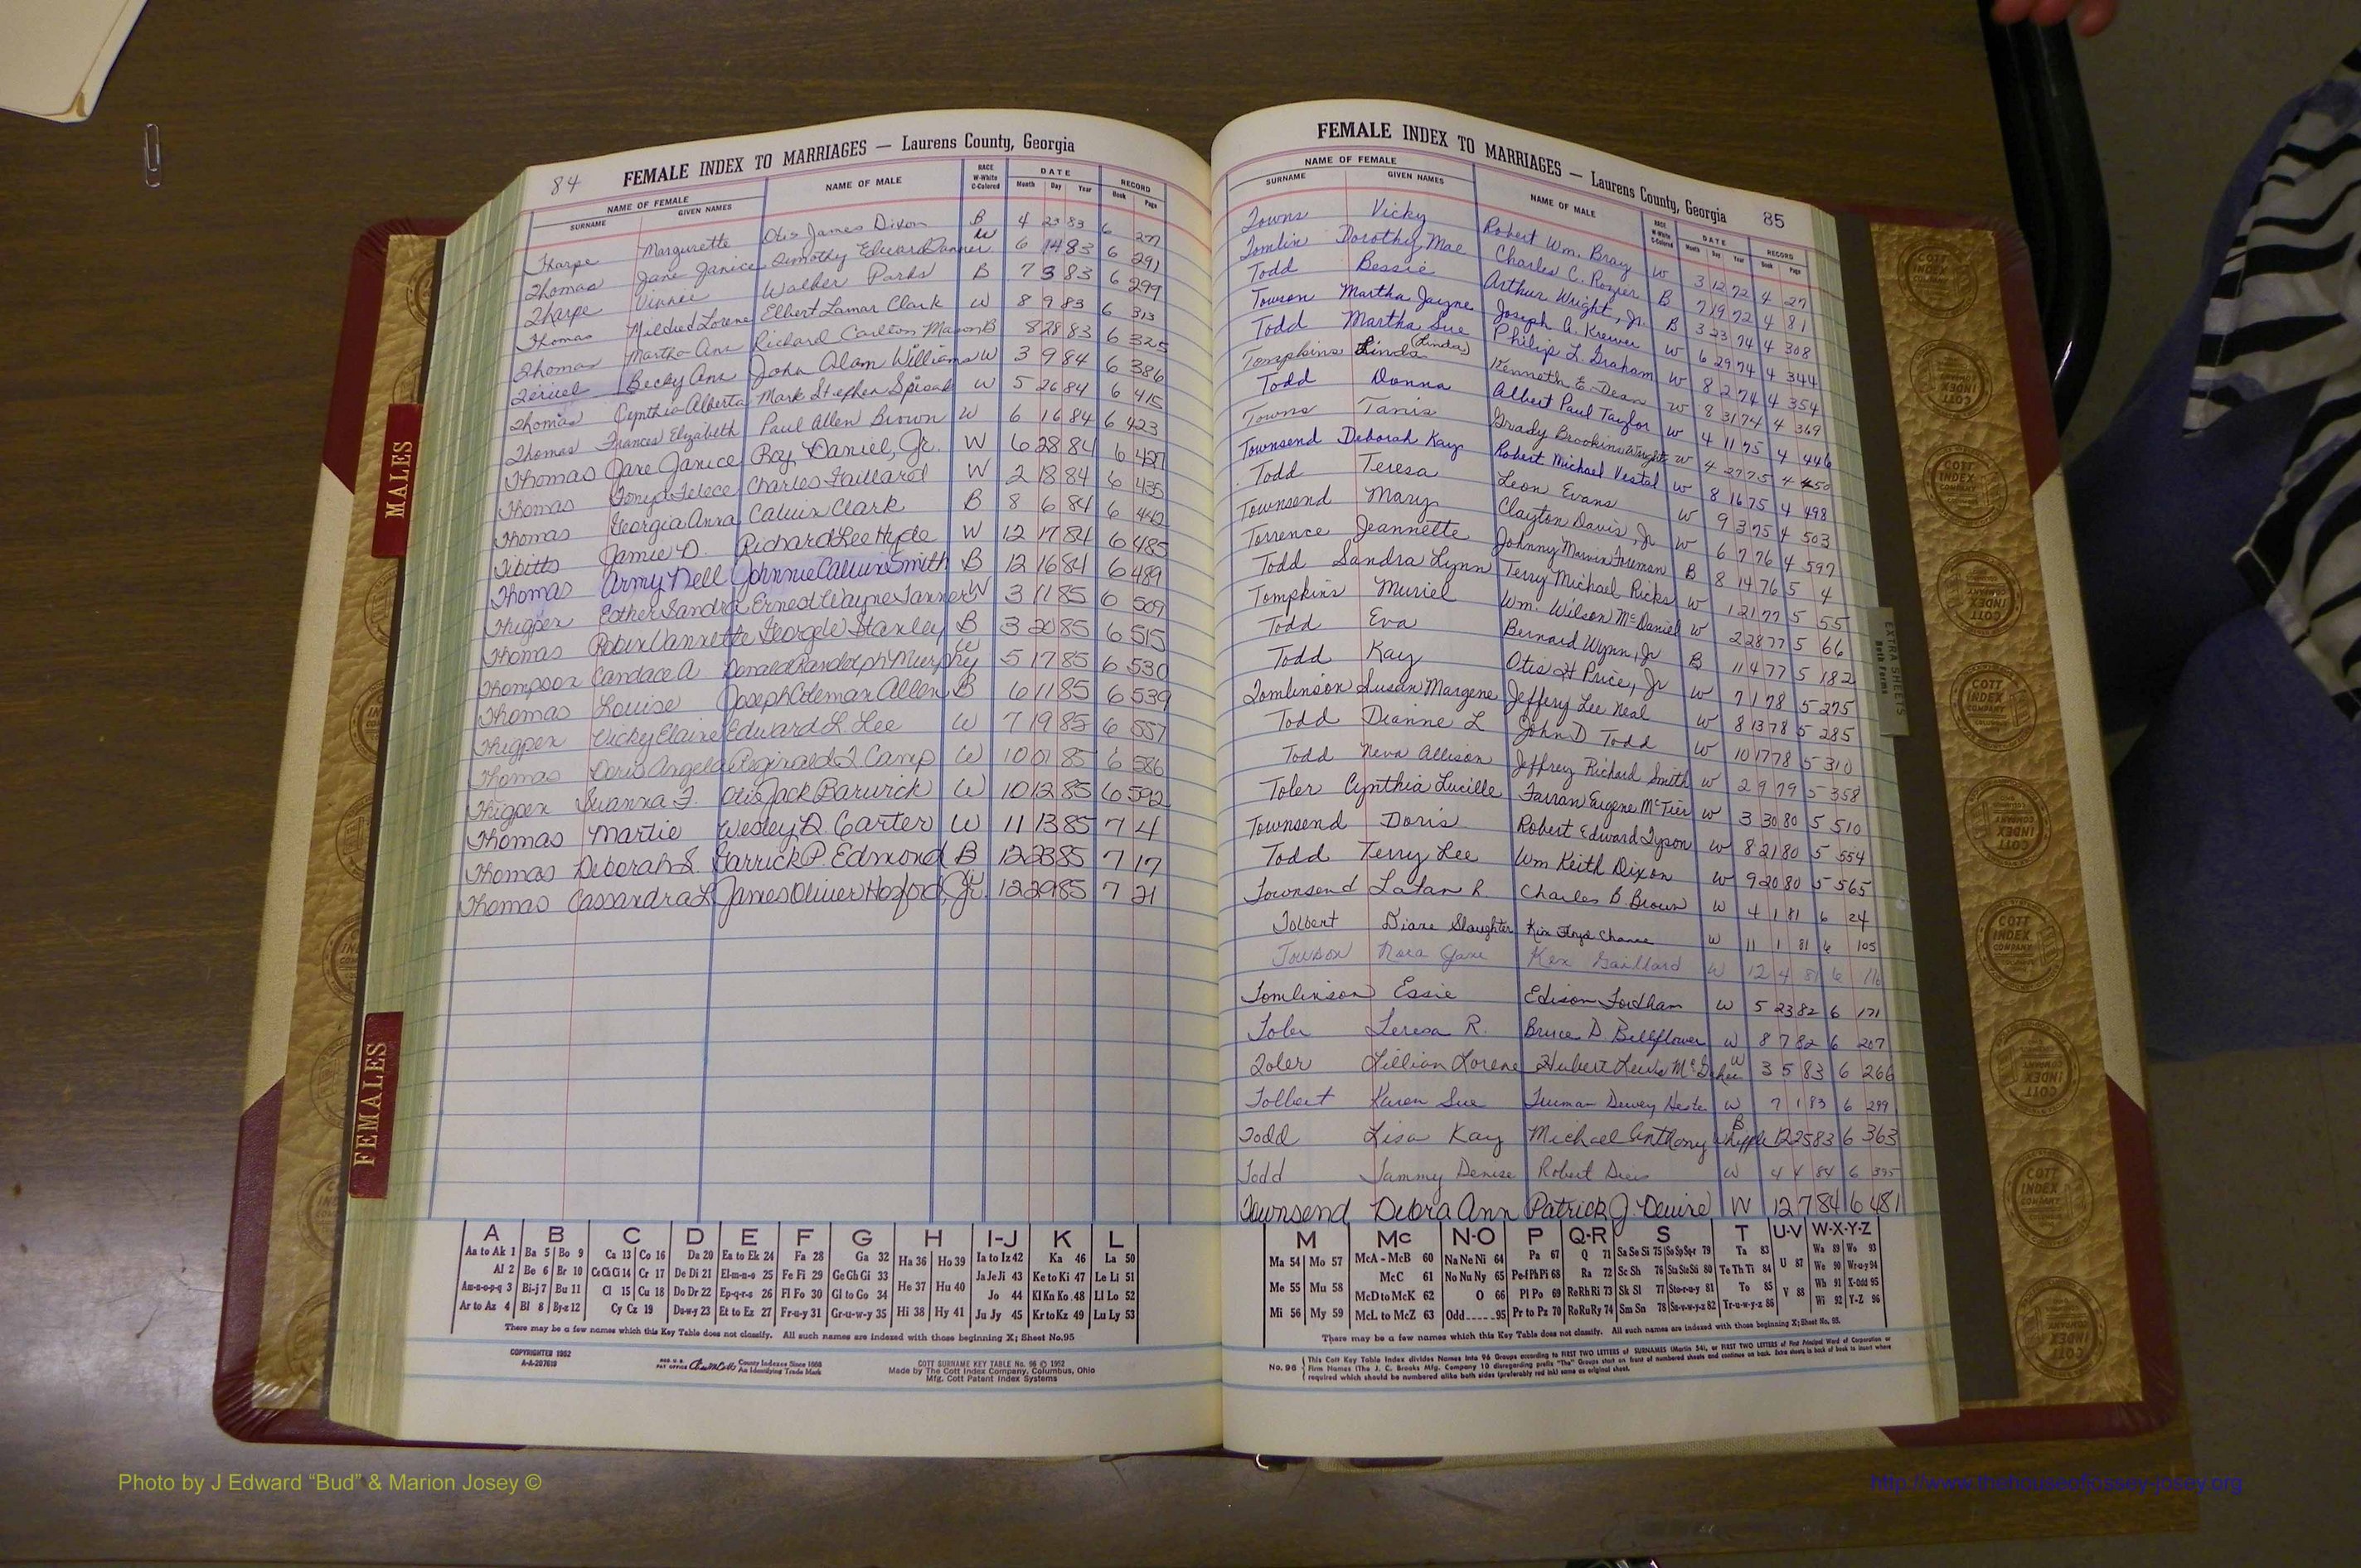 84
FEMALE INDEX TO MARRIAGES — Laurens County, Georgia
NAME OF FEMALE NAME OF MALE RACE W-White C-Colored DATE RECORD
SURNAME GIVEN NAMES Month Day Year Book Page
Tharpe Margurette Otis James Dixon B 4 23 83 6 277
Thomas Jane Janice Timothy Edward Danner W 6 14 83 6 291
Tharpe Vinnee Walker Parks B 7 3 83 6 299
Thomas Mildred Lorene Elbert Lamar Clark W 8 9 83 6 313
Thomas Martha Ann Richard Carlton Mason B 8 28 83 6 325
Becky Ann John Alam Williams W 3 9 84 6 386
Thomas Cynthia Alberta Mark Stephen Spisak W 5 26 84 6 415
Thomas Frances Elizabeth Paul Allen Brown W 6 16 84 6 423
Thomas Jane Janice Roy Daniel, Jr. W 6 28 84 6 427
Thomas Charles Gaillard W 2 18 84 6 435
Thomas Georgia Anna Calvin Clark B 8 6 84 6 442
Tibitts Jamie D. Richard Lee Hyde W 12 17 84 6 485
Thomas Army Nell Johnnie Calvin Smith B 12 16 84 6 489
Thigpen Esther Sandra Ernest Wayne Tanner W 3 11 85 6 509
Thomas Robin Vannette George W Stanley B 3 20 85 6 515
Thompson Candace A. Donald Randolph Murphy W 5 17 85 6 530
Thomas Louise Joseph Coleman Allen B 6 11 85 6 539
Thigpen Vicky Elaine Edward L. Lee W 7 19 85 6 557
Thomas Doris Angela Reginald L. Camp W 10 01 85 6 586
Thigpen Suanna F. Otis Jack Barwick W 10 12 85 6 592
Thomas Martie Wesley D. Carter W 11 13 85 7 4
Thomas Deborah S. Garrick P. Edmond B 12 23 85 7 17
Thomas Cassandra L. James Oliver Hosford, Jr. W 12 29 85 7 21
A B C D E F G H I-J K L
Aa to Ak 1 Ba 5 Bo 9 Ca 13 Co 16 Da 20 Ea to Ek 24 Fa 28 Ga 32 Ha 36 Ho 39 Ia to Iz 42 Ka 46 La 50
Al 2 Be 6 Br 10 Ce Ch Ci 14 Cr 17 De Di 21 El-m-n-o 25 Fe Fi 29 Ge Gh Gi 33 He 37 Hu 40 Ja Je Ji 43 Ke to Ki 47 Le Li 51
Am-n-o-p-q 3 Bi-j 7 Bu 11 Cl 15 Cu 18 Do Dr 22 Ep-q-r-s 26 Fl Fo 30 Gl to Go 34 Jo 44 Kl Kn Ko 48 Ll Lo 52
Ar to Az 4 Bl 8 By-z 12 Cy Cz 19 Du-w-y 23 Et to Ez 27 Fr-u-y 31 Gr-u-w-y 35 Hi 38 Hy 41 Ju Jy 45 Kr to Kz 49 Lu Ly 53
There may be a few names which this Key Table does not classify. All such names are indexed with those beginning X; Sheet No. 95
COPYRIGHTED 1952
A-A-207619
REG. U.S. PAT OFFICE County Indexes Since 1888
An Identifying Trade Mark
COTT SURNAME KEY TABLE No. 96 © 1952
Made by The Cott Index Company, Columbus, Ohio
Mfg. Cott Patent Index Systems
FEMALE INDEX TO MARRIAGES — Laurens County, Georgia 85
NAME OF FEMALE NAME OF MALE RACE W-White C-Colored DATE RECORD
SURNAME GIVEN NAMES Month Day Year Book Page
Towns Vicky Robert Wm. Bray W 3 12 72 4 27
Tomlin Dorothy Mae Charles C. Rozier B 7 19 72 4 81
Todd Bessie Arthur Wright, Jr. B 3 23 74 4 308
Towson Martha Jayne Joseph A. Krewer W 6 29 74 4 344
Todd Martha Sue Philip L. Graham W 8 2 74 4 354
Tompkins Linda (Linda) Kenneth E. Dean W 8 31 74 4 369
Todd Donna Albert Paul Taylor W 4 11 75 4 446
Towns Tanis Grady Brookins Wright W 4 27 75 4 450
Townsend Deborah Kay Robert Michael Vestal W 8 16 75 4 498
Todd Teresa Leon Evans W 9 3 75 4 503
Townsend Mary Clayton Davis, Jr W 6 7 76 4 597
Torrence Jeannette Johnny Marvin Foreman B 8 14 76 5 4
Todd Sandra Lynn Terry Michael Ricks W 1 21 77 5 55
Tompkins Muriel Wm. Wilson McDaniel W 2 28 77 5 66
Todd Eva Bernard Wynn, Jr B 11 4 77 5 182
Todd Kay Otis H Price, Jr W 7 1 78 5 275
Tomlinson Susan Margene Jeffery Lee Neal W 8 13 78 5 285
Todd Dianne L John D Todd W 10 17 78 5 310
Todd Neva Allison Jeffrey Richard Smith W 2 9 79 5 358
Toler Cynthia Lucille Farran Eugene McTier W 3 30 80 5 510
Townsend Doris Robert Edward Tyson W 8 21 80 5 554
Todd Terry Lee Wm Keith Dixon W 9 20 80 5 565
Townsend LaFan R. Charles B. Brown W 4 1 81 6 24
Tolbert Diane Slaughter Kim Floyd Chance W 11 1 81 6 105
Towson Nora Jane Kex Gaillard W 12 4 81 6 116
Tomlinson Essie Edison Fordham W 5 23 82 6 171
Toler Teresa R. Bruce D. Bellflower W 8 7 82 6 207
Toler Lillian Lorene Hubert Lewis W 3 5 83 6 266
Tolbert Karen Sue Truman Dewey Hester W 7 1 83 6 299
Todd Lisa Kay Michael Anthony Whipple B 12 25 83 6 363
Todd Tammy Denise Robert W 4 4 84 6 395
Townsend Debra Ann Patrick J. Devine W 12 7 84 6 481
M Mc N-O P Q-R S T U-V W-X-Y-Z
Ma 54 Mo 57 McA - McB 60 Na Ne Ni 64 Pa 67 Q 71 Sa Se Si 75 So Sp Sq-r 79 Ta 83 U 87 Wa 89 Wo 93
Me 55 Mu 58 McC 61 No Nu Ny 65 Pe-f Ph Pi 68 Ra 72 Sc Sh 76 Sta Ste Sti 80 Te Th Ti 84 We 90 Wr-u-y 94
McD to McK 62 O 66 Pl Po 69 Re Rh Ri 73 Sk Sl 77 Sto-r-u-y 81 To 85 V 88 Wh 91 X-Odd 95
Mi 56 My 59 McL to McZ 63 Odd 95 Pr to Pz 70 Ro Ru Ry 74 Sm Sn 78 Su-v-w-y-z 82 Tr-u-w-y-z 86 Wi 92 Y-Z 96
There may be a few names which this Key Table does not classify. All such names are indexed with those beginning X; Sheet No. 95.
No. 96 This Cott Key Table Index divides Names into 96 Groups according to FIRST TWO LETTERS of SURNAMES (Martin 54), or FIRST TWO LETTERS of First Principal Word of Corporation or
Firm Names (The J. C. Brooks Mfg. Company 10 disregarding prefix "The" Groups start on front of numbered sheets and continue on back. Extra sheets in back of book to insert where
required which should be numbered alike both sides (preferably red ink) same as original sheet.
MALES
FEMALES
EXTRA SHEETS
Both Forms
COTT INDEX COMPANY
Photo by J Edward “Bud” & Marion Josey ©
http://www.thehouseofjossey-josey.org